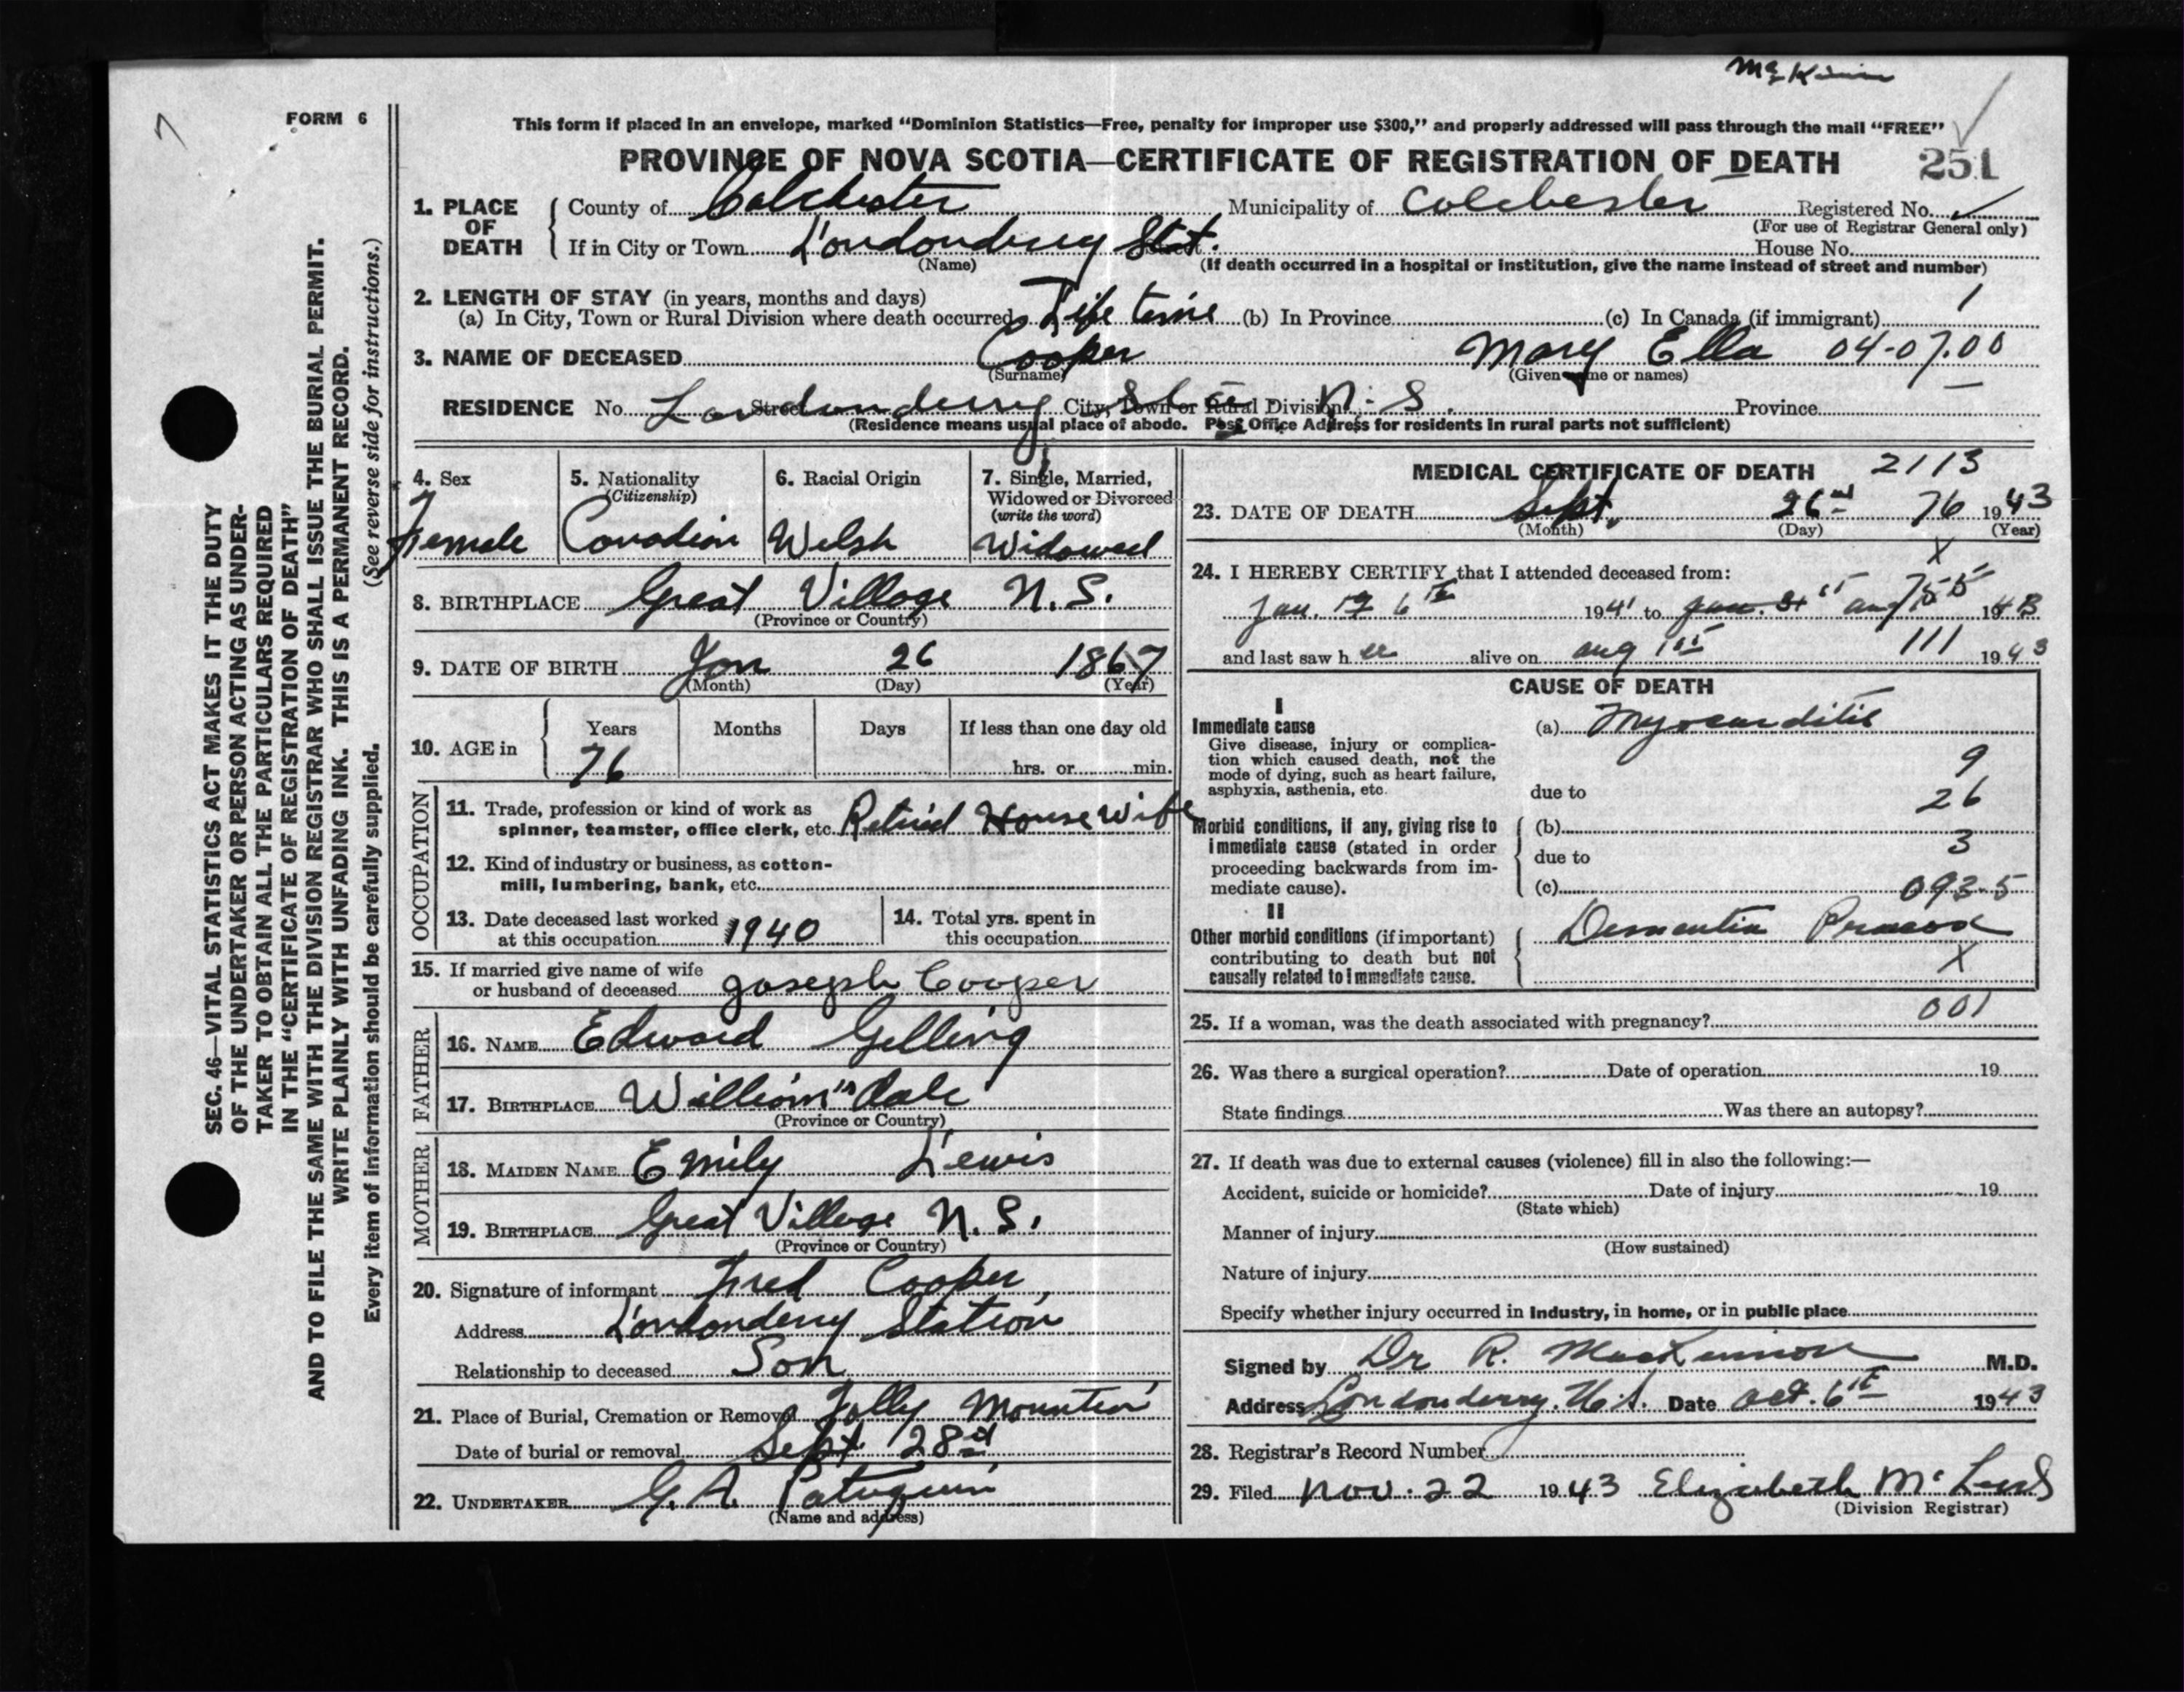 McKinnon
7
FORM 6
This form if placed in an envelope, marked "Dominion Statistics—Free, penalty for improper use $300," and properly addressed will pass through the mail "FREE"
PROVINCE OF NOVA SCOTIA—CERTIFICATE OF REGISTRATION OF DEATH 251
1. PLACE OF DEATH County of Colchester Municipality of Colchester Registered No.
(For use of Registrar General only)
If in City or Town Londonderry Stat. House No.
(Name) (If death occurred in a hospital or institution, give the name instead of street and number)
2. LENGTH OF STAY (in years, months and days)
(a) In City, Town or Rural Division where death occurred Life time (b) In Province (c) In Canada (if immigrant) 1
3. NAME OF DECEASED Cooper Mary Ella 04-07.00
(Surname) (Given name or names)
RESIDENCE No. Londonderry Street City, Town or Rural Division N.S. Province
(Residence means usual place of abode. Post Office Address for residents in rural parts not sufficient)
SEC. 46—VITAL STATISTICS ACT MAKES IT THE DUTY
OF THE UNDERTAKER OR PERSON ACTING AS UNDER-
TAKER TO OBTAIN ALL THE PARTICULARS REQUIRED
IN THE "CERTIFICATE OF REGISTRATION OF DEATH"
AND TO FILE THE SAME WITH THE DIVISION REGISTRAR WHO SHALL ISSUE THE BURIAL PERMIT.
WRITE PLAINLY WITH UNFADING INK. THIS IS A PERMANENT RECORD.
Every item of information should be carefully supplied. (See reverse side for instructions.)
4. Sex 5. Nationality 6. Racial Origin 7. Single, Married,
(Citizenship) Widowed or Divorced
(write the word)
Female Canadian Welsh Widowed
8. BIRTHPLACE Great Village N.S.
(Province or Country)
9. DATE OF BIRTH Jan 26 1867
(Month) (Day) (Year)
10. AGE in Years Months Days If less than one day old
76 hrs. or min.
OCCUPATION
11. Trade, profession or kind of work as
spinner, teamster, office clerk, etc. Retired House Wife
12. Kind of industry or business, as cotton-
mill, lumbering, bank, etc.
13. Date deceased last worked
at this occupation 1940
14. Total yrs. spent in
this occupation
15. If married give name of wife
or husband of deceased Joseph Cooper
FATHER
16. NAME Edward Gelling
17. BIRTHPLACE William's dale
(Province or Country)
MOTHER
18. MAIDEN NAME Emily Lewis
19. BIRTHPLACE Great Village N.S.
(Province or Country)
20. Signature of informant Fred Cooper
Address Londonderry Station
Relationship to deceased Son
21. Place of Burial, Cremation or Removal Folly Mountin
Date of burial or removal Sept 28
22. UNDERTAKER G. A. Patriquin
(Name and address)
MEDICAL CERTIFICATE OF DEATH 2113
23. DATE OF DEATH Sept. 26 76 1943
(Month) (Day) (Year)
X
24. I HEREBY CERTIFY that I attended deceased from:
Jan. 6th 1941 to Aug 1943
and last saw her alive on Aug 1st 111 1943
CAUSE OF DEATH
I
Immediate cause (a) Myocarditis
Give disease, injury or complica-
tion which caused death, not the
mode of dying, such as heart failure,
asphyxia, asthenia, etc. due to
9
26
Morbid conditions, if any, giving rise to
immediate cause (stated in order
proceeding backwards from im-
mediate cause).
(b)
due to 3
(c) 093-5
II
Other morbid conditions (if important)
contributing to death but not
causally related to immediate cause.
Dementia
X
25. If a woman, was the death associated with pregnancy? 001
26. Was there a surgical operation? Date of operation 19
State findings Was there an autopsy?
27. If death was due to external causes (violence) fill in also the following:—
Accident, suicide or homicide? Date of injury 19
(State which)
Manner of injury
(How sustained)
Nature of injury
Specify whether injury occurred in industry, in home, or in public place
Signed by Dr R. MacKinnon M.D.
Address Londonderry. N.S. Date Oct. 6th 1943
28. Registrar's Record Number
29. Filed Nov. 22 1943 Elizabeth
(Division Registrar)